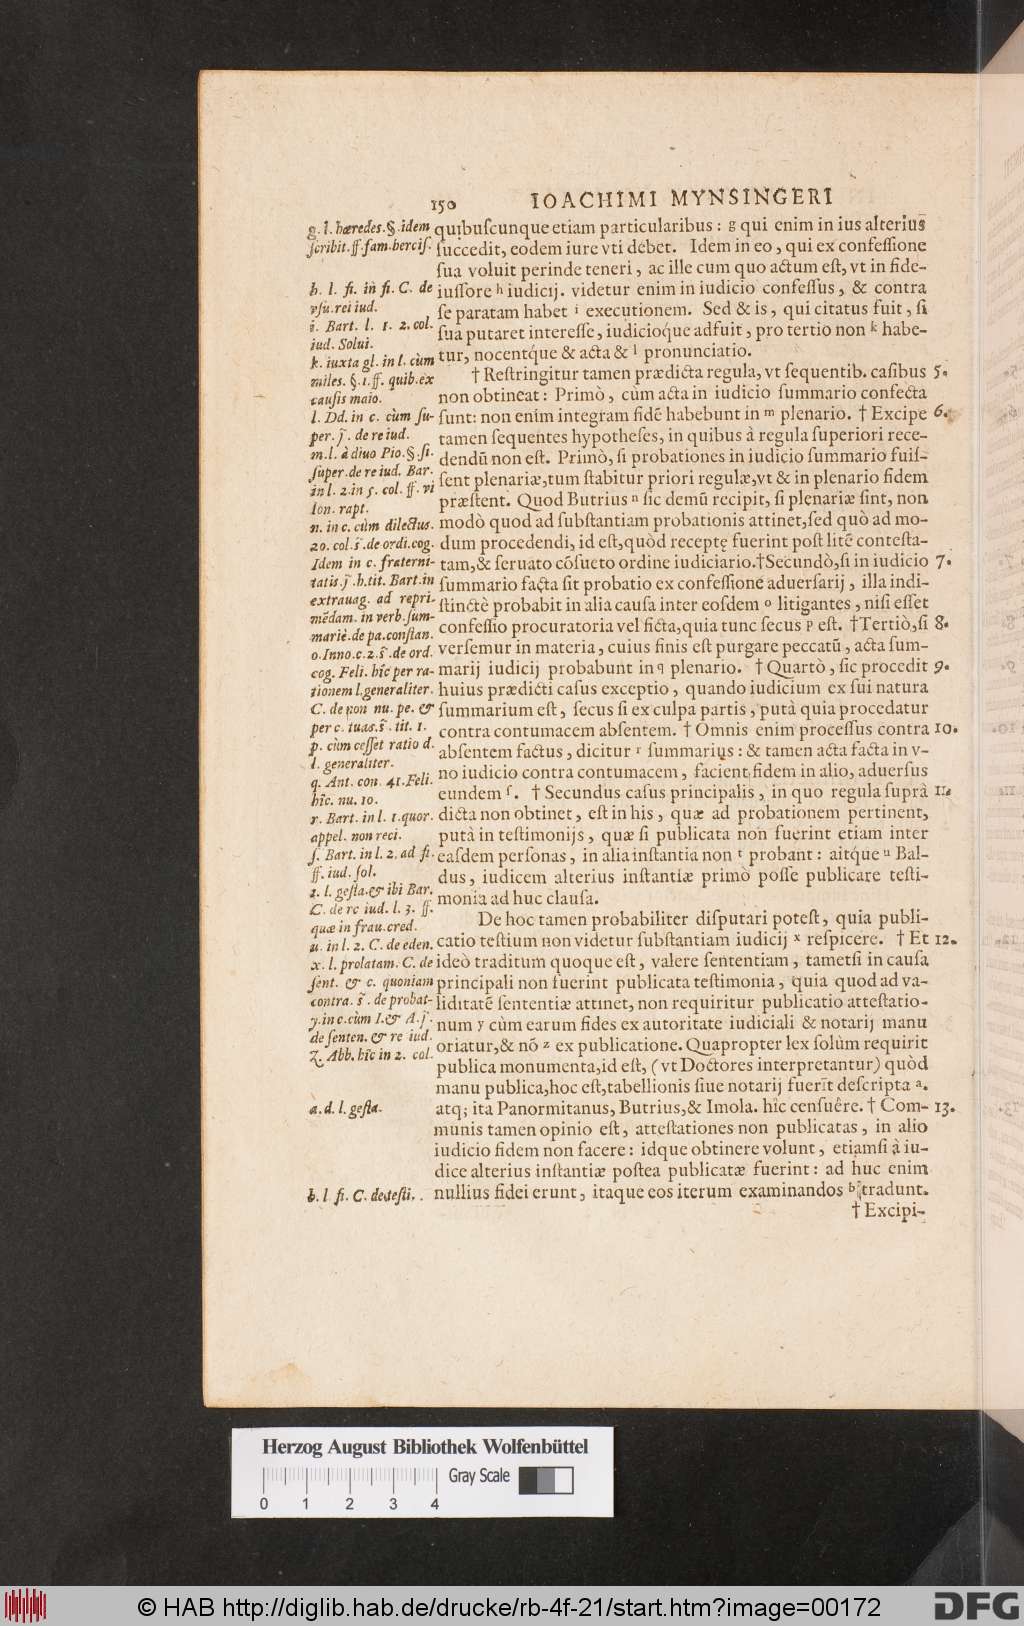 150 IOACHIMI MYNSINGERI
quibuſcunque etiam particularibus : g qui enim in ius alterius
ſuccedit, eodem iure vti debet. Idem in eo, qui ex confeſſione
ſua voluit perinde teneri, ac ille cum quo actum eſt, vt in fide-
iuſſore h iudicij. videtur enim in iudicio confeſſus, & contra
ſe paratam habet i executionem. Sed & is, qui citatus fuit, ſi
ſua putaret intereſſe, iudicioq́ue adfuit, pro tertio non k habe-
tur, nocentq́ue & acta & l pronunciatio.
† Reſtringitur tamen prædicta regula, vt ſequentib. caſibus 5.
non obtineat : Primò, cùm acta in iudicio ſummario confecta
ſunt: non enim integram fidẽ habebunt in m plenario. † Excipe 6.
tamen ſequentes hypotheſes, in quibus à regula ſuperiori rece-
dendũ non eſt. Primò, ſi probationes in iudicio ſummario fuiſ-
ſent plenariæ,tum ſtabitur priori regulæ,vt & in plenario fidem
præſtent. Quod Butrius n ſic demũ recipit, ſi plenariæ ſint, non
modò quod ad ſubſtantiam probationis attinet,ſed quò ad mo-
dum procedendi, id eſt,quòd receptę fuerint poſt litẽ conteſta-
tam,& ſeruato cõſueto ordine iudiciario.†Secundò,ſi in iudicio 7.
ſummario facta ſit probatio ex confeſſione aduerſarij, illa indi-
ſtinctè probabit in alia cauſa inter eoſdem o litigantes, niſi eſſet
confeſſio procuratoria vel ficta,quia tunc ſecus p eſt. †Tertiò,ſi 8.
verſemur in materia, cuius finis eſt purgare peccatũ, acta ſum-
marij iudicij probabunt in q plenario. † Quartò, ſic procedit 9.
huius prædicti caſus exceptio, quando iudicium ex ſui natura
ſummarium eſt, ſecus ſi ex culpa partis, putà quia procedatur
contra contumacem abſentem. † Omnis enim proceſſus contra 10.
abſentem factus, dicitur r ſummarius : & tamen acta facta in v-
no iudicio contra contumacem, facient fidem in alio, aduerſus
eundem ſ. † Secundus caſus principalis, in quo regula ſuprà 11.
dicta non obtinet, eſt in his, quæ ad probationem pertinent,
putà in teſtimonijs, quæ ſi publicata non fuerint etiam inter
eaſdem perſonas, in alia inſtantia non t probant : aitq́ue u Bal-
dus, iudicem alterius inſtantiæ primò poſſe publicare teſti-
monia ad huc clauſa.
De hoc tamen probabiliter diſputari poteſt, quia publi-
catio teſtium non videtur ſubſtantiam iudicij x reſpicere. † Et 12.
ideò traditum quoque eſt, valere ſententiam, tametſi in cauſa
principali non fuerint publicata teſtimonia, quia quod ad va-
liditatẽ ſententiæ attinet, non requiritur publicatio atteſtatio-
num y cùm earum fides ex autoritate iudiciali & notarij manu
oriatur,& nõ z ex publicatione. Quapropter lex ſolùm requirit
publica monumenta,id eſt, (vt Doctores interpretantur) quòd
manu publica,hoc eſt,tabellionis ſiue notarij fuerĩt deſcripta a.
atq; ita Panormitanus, Butrius,& Imola. hîc cenſuêre. † Com- 13.
munis tamen opinio eſt, atteſtationes non publicatas, in alio
iudicio fidem non facere : idque obtinere volunt, etiamſi à iu-
dice alterius inſtantiæ poſtea publicatæ fuerint : ad huc enim
nullius fidei erunt, itaque eos iterum examinandos b tradunt.
† Excipi-
g. l. hæredes. §. idem
ſcribit. ff. fam. herciſ.
h. l. fi. in fi. C. de
vſu. rei iud.
i. Bart. l. 1. 2. col.
iud. Solui.
k. iuxta gl. in l. cùm
miles. §. 1. ff. quib. ex
cauſis maio.
l. Dd. in c. cùm ſu-
per. j̃. de re iud.
m. l. à diuo Pio. §. ſi.
ſuper. de re iud. Bar.
in l. 2. in 5. col. ff. vi
bon. rapt.
n. in c. cùm dilectus.
20. col. s̃. de ordi. cog.
Idem in c. fraterni-
tatis. j̃. h. tit. Bart. in
extrauag. ad repri-
mẽdam. in verb. ſum-
mariè. de pa. conſtan.
o. Inno. c. 2. s̃. de ord.
cog. Feli. hîc per ra-
tionem l. generaliter.
C. de non nu. pe. &
per c. tuas. s̃. tit. 1.
p. cùm ceſſet ratio d.
l. generaliter.
q. Ant. con. 41. Feli.
hîc. nu. 10.
r. Bart. in l. 1. quor.
appel. non reci.
ſ. Bart. in l. 2. ad fi.
ff. iud. ſol.
t. l. geſta. & ibi Bar.
C. de re iud. l. 3. ff.
quæ in frau. cred.
u. in l. 2. C. de eden.
x. l. prolatam. C. de
ſent. & c. quoniam
contra. s̃. de probat-
y. in c. cùm I. & A. j̃.
de ſenten. & re iud.
z. Abb. hîc in 2. col.
a. d. l. geſta.
b. l. fi. C. de teſti.
Herzog August Bibliothek Wolfenbüttel
Gray Scale
0 1 2 3 4
© HAB http://diglib.hab.de/drucke/rb-4f-21/start.htm?image=00172
DFG